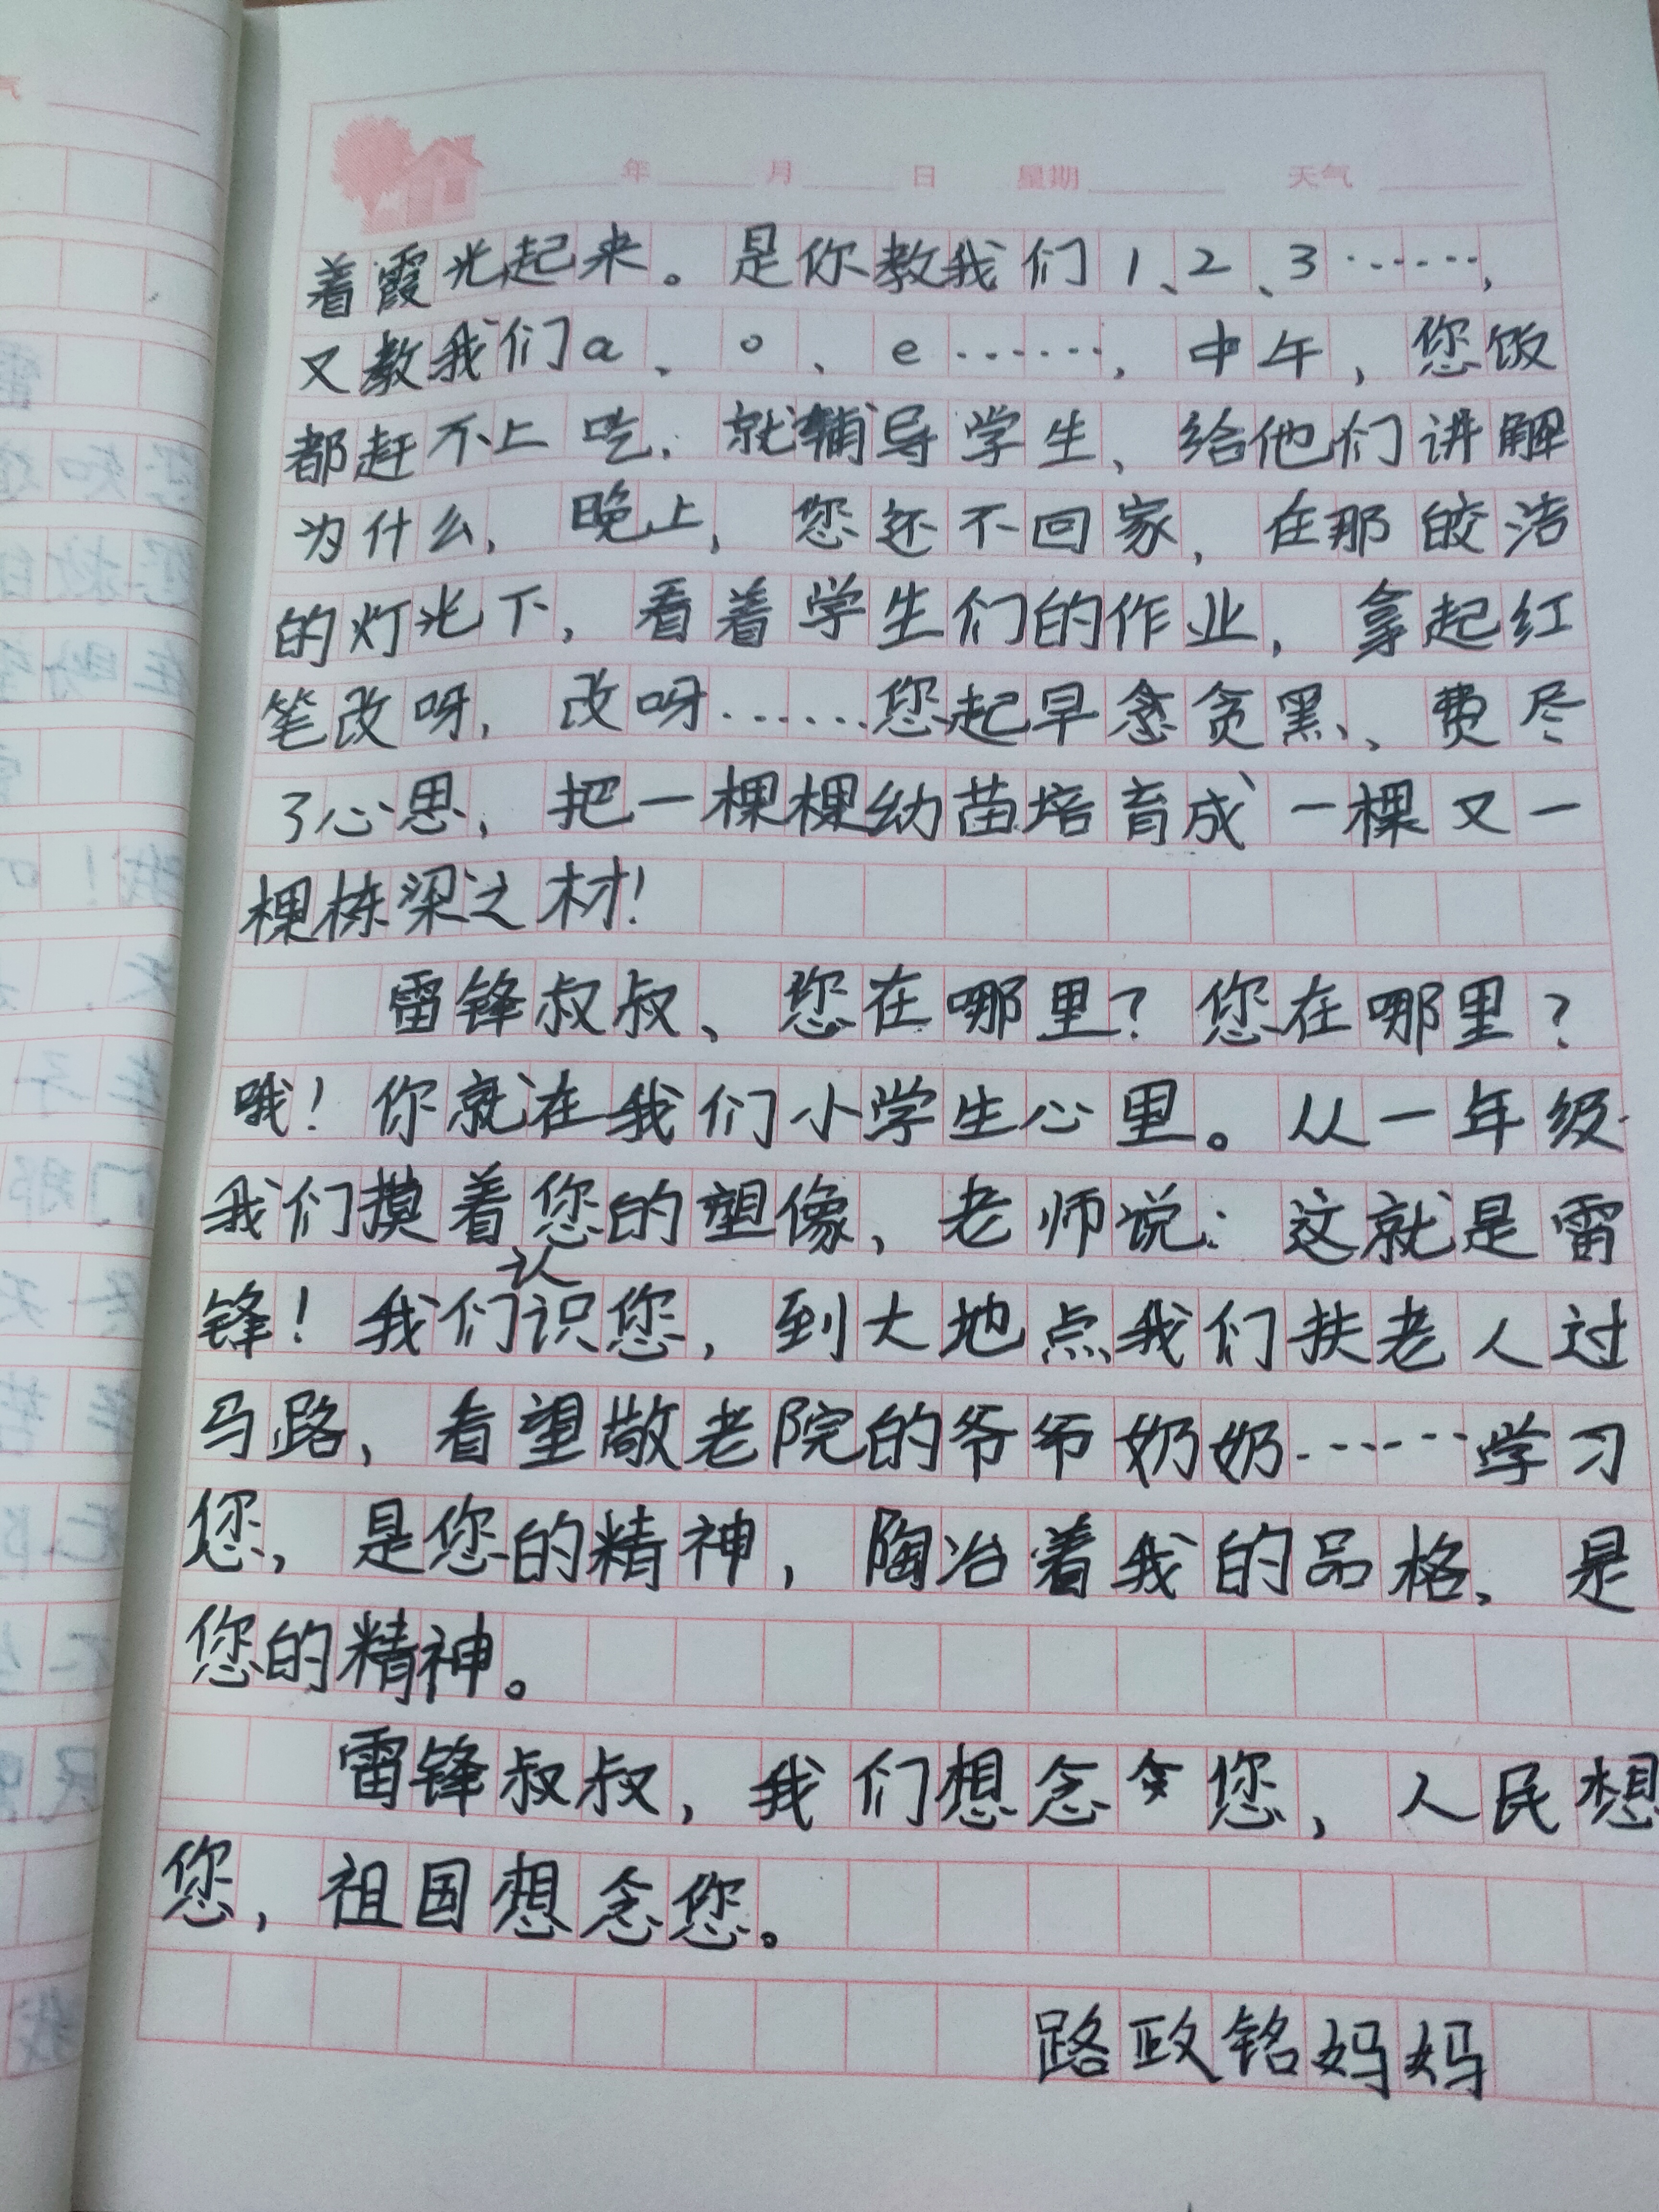 年 月 日 星期 天气
着霞光起来。是你教我们1、2、3……,
又教我们a、o、e……,中午,您饭
都赶不上吃,就辅导学生、给他们讲解
为什么,晚上,您还不回家,在那皎洁
的灯光下,看着学生们的作业,拿起红
笔改呀,改呀……您起早贪黑、费尽
了心思,把一棵棵幼苗培育成一棵又一
棵栋梁之材!
雷锋叔叔、您在哪里?您在哪里?
哦!你就在我们小学生心里。从一年级
我们摸着您的塑像、老师说:这就是雷
锋!我们认识您,到大地点我们扶老人过
马路、看望敬老院的爷爷奶奶……学习
您,是您的精神,陶冶着我的品格、是
您的精神。
雷锋叔叔,我们想念您,人民想
您,祖国想念您。
路政铭妈妈